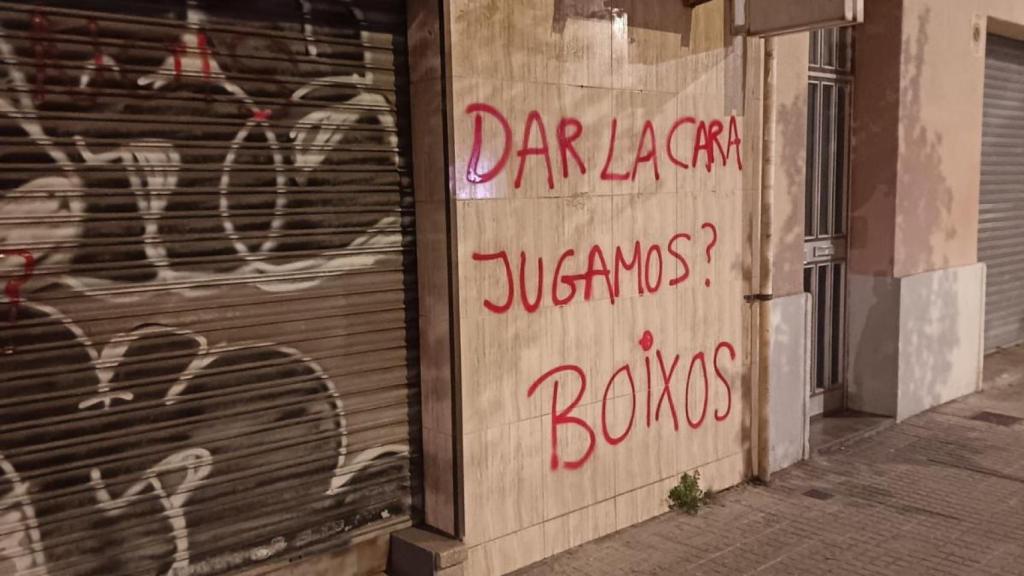 DAR LA CARA
JUGAMOS?
BOIXOS